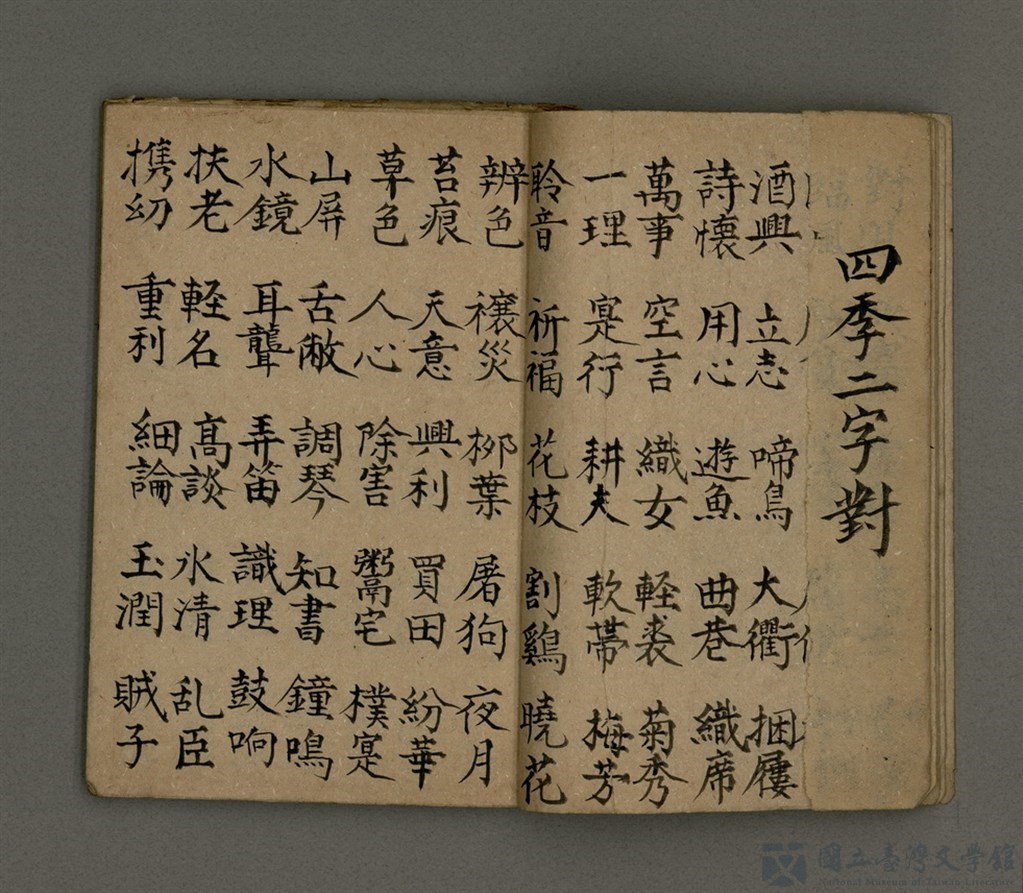 四季二字對
酒興 立志 啼鳥 大衢 捆屨
詩懷 用心 遊魚 曲巷 織席
萬事 空言 織女 軽裘 菊秀
一理 寔行 耕夫 軟蒂 梅芳
聆音 祈福 花枝 割鷄 曉花
辨色 禳災 柳葉 屠狗 夜月
苔痕 天意 興利 買田 紛華
草色 人心 除害 鬻宅 樸寔
山屏 舌敝 調琴 知書 鐘鳴
水鏡 耳聾 弄笛 識理 鼓响
扶老 軽名 高談 氷清 乱臣
携幼 重利 細論 玉潤 賊子
國立臺灣文學館
National Museum of Taiwan Literature